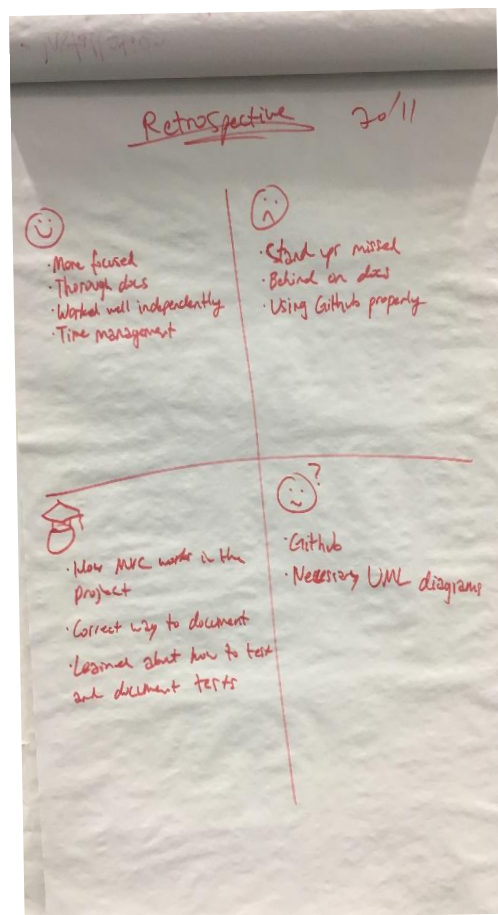 Retrospective 20/11
· More focused
· Thorough docs
· Worked well independently
· Time management
· Stand ups missed
· Behind on docs
· Using Github properly
· How MVC works in the
project
· Correct way to document
· Learned about how to test
and document tests
?
· Github
· Necessary UML diagrams